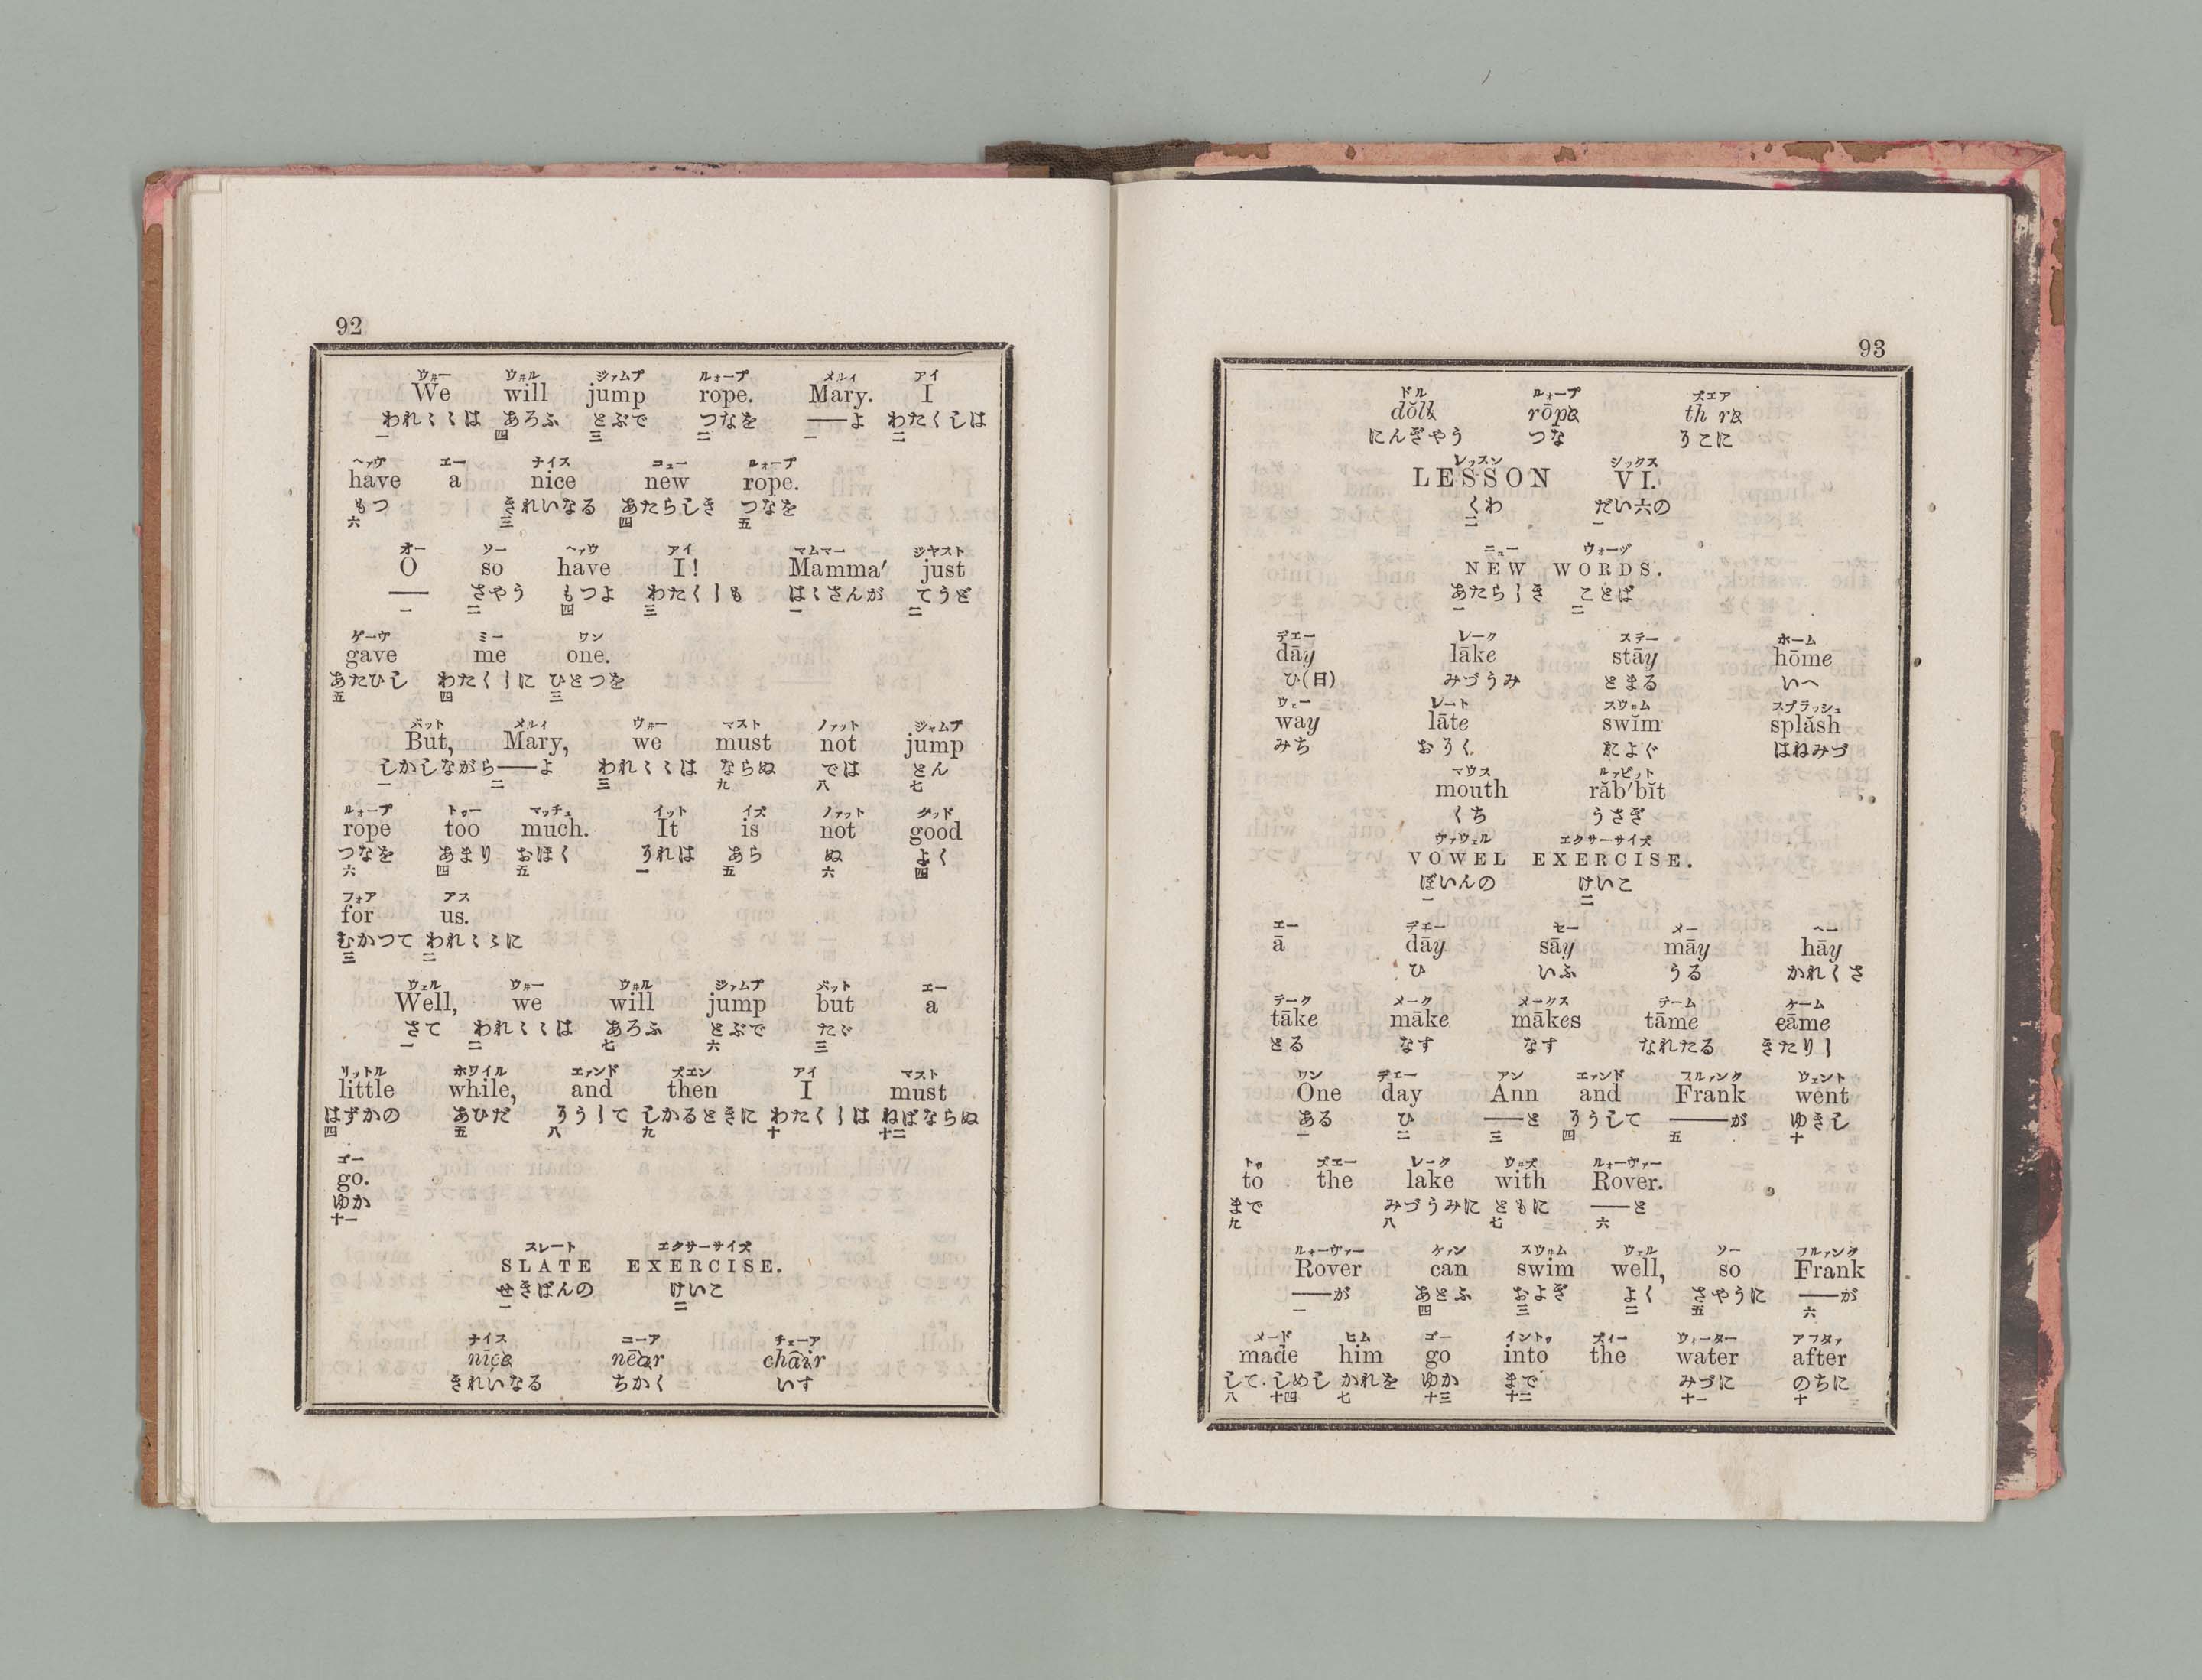 92
ウ井ー ウ井ル ジァムプ ルォープ メルィ アイ
We will jump rope. Mary. I
われ〻〻は あろふ とぶで つなを ——よ わたくしは
一 四 三 二 一 二
ヘァヴ エー ナイス ニュー ルォープ
have a nice new rope.
もつ きれいなる あたらしき つなを
六 三 四 五
オー ソー ヘァヴ アイ マムマー ジヤスト
O so have I! Mamma′ just
—— さやう もつよ わたくしも はゝさんが てうど
一 二 四 三 一 二
ゲーヴ ミー ワン
gave me one.
あたひし わたくしに ひとつを
五 四 三
バット メルィ ウ井ー マスト ノァット ジャムプ
But, Mary, we must not jump
しかしながら——よ われ〻〻は ならぬ では とん
一 二 三 九 八 七
ルォープ トゥー マッチュ イット イズ ノァット グッド
rope too much. It is not good
つなを あまり おほく それは あら ぬ よく
六 四 五 一 五 六 四
フォア アス
for us.
むかつて われ〻〻に
三 二
ウェル ウ井ー ウ井ル ジァムプ バット エー
Well, we will jump but a
さて われ〻〻は あろふ とぶで たゞ
一 二 七 六 三
リットル ホワイル エァンド ズエン アイ マスト
little while, and then I must
はずかの あひだ そうして しかるときに わたくしは ねばならぬ
四 五 八 九 十 十二
ゴー
go.
ゆか
十一
スレート エクサーサイズ
SLATE EXERCISE.
せきばんの けいこ
一 二
ナイス ニーア チェーア
nīce neâr châir
きれいなる ちかく いす
93
ドル ルォープ ズエア
dŏll rōpe th re
にんぎやう つな そこに
レッスン シックス
LESSON VI.
くわ だい六の
二 一
ニュー ウォーヅ
NEW WORDS.
あたらしき ことば
一 二
デエー レーク ステー ホーム
dāy lāke stāy hōme
ひ(日) みづうみ とまる いへ
ウェー レート スウ井ム スプラッシュ
way lāte swĭm splăsh
みち おそく およぐ はねみづ
マウス ルァビット
mouth răb′bĭt
くち うさぎ
ヴァウェル エクサーサイズ
VOWEL EXERCISE.
ぼいんの けいこ
一 二
エー デエー セー メー ヘー
ā dāy sāy māy hāy
ひ いふ うる かれくさ
テーク メーク メークス テーム ケーム
tāke māke mākes tāme cāme
とる なす なす なれたる きたりし
ワン デェー アン エァンド フルァンク ウェント
One day Ann and Frank went
ある ひ ——と そうして ——が ゆきし
一 二 三 四 五 十
トゥ ズエー レーク ウ井ズ ルォーヴァー
to the lake with Rover.
まで みづうみに ともに ——と
九 八 七 六
ルォーヴァー ケァン スウ井ム ウェル ソー フルァンク
Rover can swim well, so Frank
——が あとふ およぎ よく さやうに ——が
一 四 三 二 五 六
メード ヒム ゴー イントゥ ズィー ウォーター アフタァ
made him go into the water after
して・しめし かれを ゆか まで みづに のちに
八 十四 七 十三 十二 十一 十